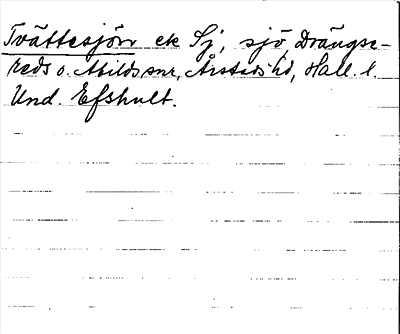 Tvättesjön ek Sj, sjö, Drängse-
reds o. Abilds snr, Årstads hd, Hall. l.
Und. Efshult.